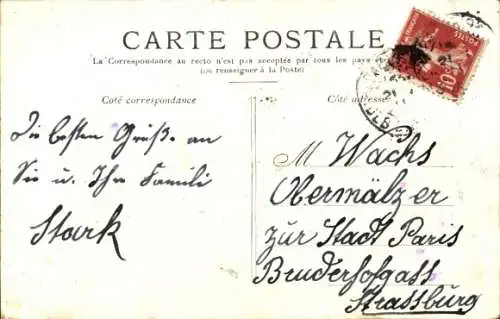 CARTE POSTALE
La Correspondance au recto n'est pas acceptée par tous les pays
(se renseigner à la Poste)
Côté correspondance
Die besten Grüße an
Sie u. Ihre Famili
Stark
Côté adresse
M Wachs
Obermälzer
zur Stadt Paris
Bruderhofgass
Strassburg
10
POSTES